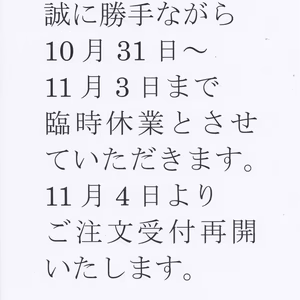 誠に勝手ながら
10月31日～
11月3日まで
臨時休業とさせ
ていただきます。
11月4日より
ご注文受付再開
いたします。